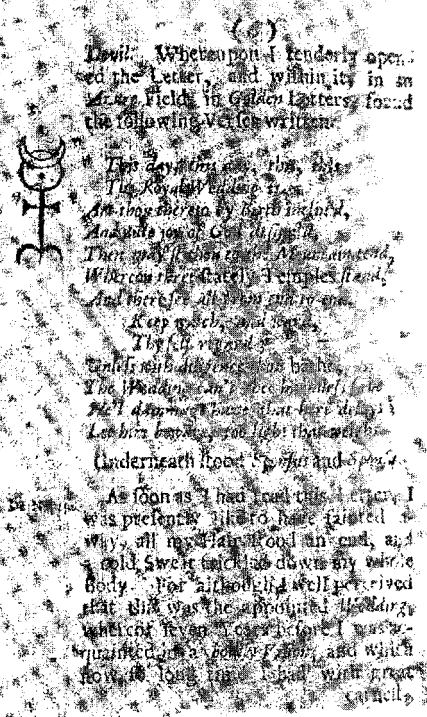 (6)
Devil. Whereupon I tenderly open-
ed the Letter, and within it, in an
Azure Field, in Golden Letters, found
the following Verses written.
This day, this day, this, this
The Royal Wedding is.
Art thou thereto by birth inclin'd,
And unto joy of God design'd,
Then may'st thou to the Mountain tend,
Whereon three stately Temples stand,
And there see all from end to end.
Keep watch, and ward,
Thy self regard;
Unless with diligence thou bathe,
The Wedding can't thee harmless save:
He'l damage have that here delays;
Let him beware, too light that weighs.
Underneath stood Sponsus and Sponsa.
As soon as I had read this Letter, I
was presently like to have fainted a-
way, all my Hair stood an end, and
a cold Sweat trickled down my whole
Body. For although I well perceived
that this was the appointed Wedding,
whereof seven Years before I was ac-
quainted in a bodily Vision, and which
now so long time I had with great
earnest,